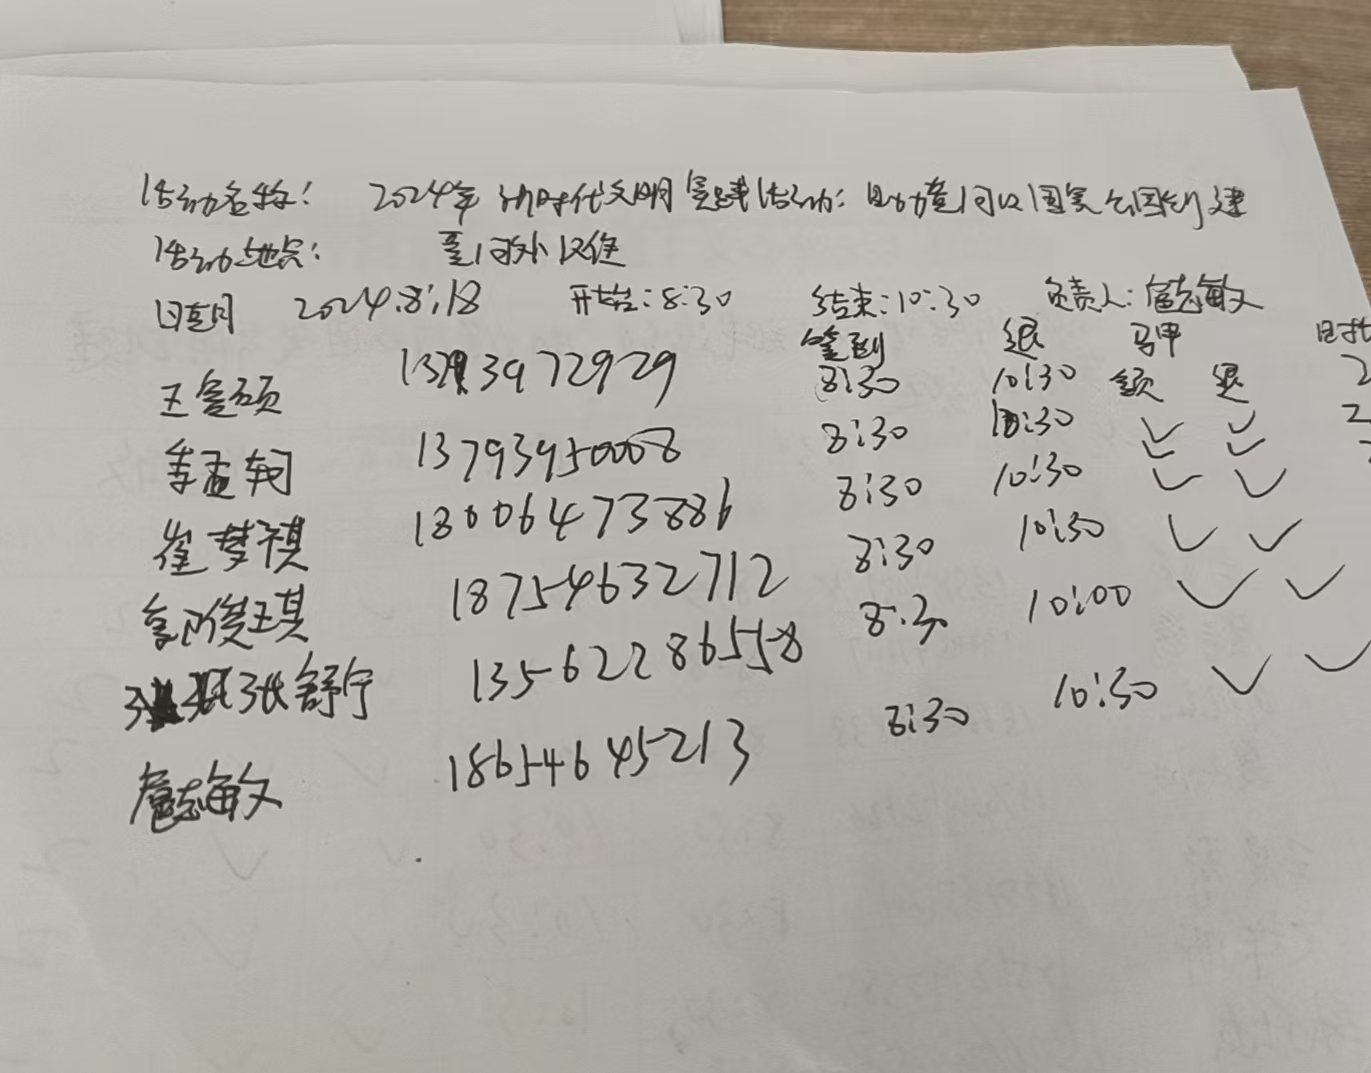 活动名称: 2024年新时代文明实践活动: 助力黄河口国家公园创建
活动地点: 黄河外仅住
日期 2024.8.18 开始:8:30 结束:10:30 负责人: 扈志敏
签到 退 马甲 时
王鑫硕 13793972929 8:30 10:30 领 退 2
季孟轲 13793950008 8:30 10:30 ✓ ✓ 2
崔梦祺 18006473886 8:30 10:30 ✓ ✓
18754632712 8:30 10:30 ✓ ✓
张舒宁 13562286558 8:30 10:00 ✓ ✓
扈志敏 18654645213 8:30 10:30 ✓ ✓